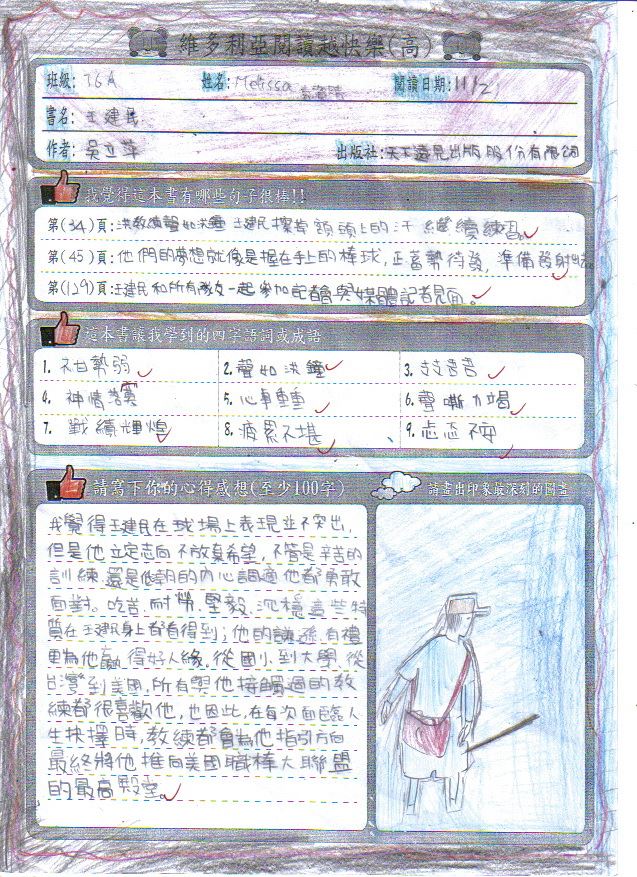 維多利亞閱讀越快樂(高)
班級: T6A 姓名: Melissa 閱讀日期: 11/2
書名: 王建民
作者: 吳立萍 出版社: 天下遠見出版股份有限公司
我覺得這本書有哪些句子很棒!!
第(34)頁: 洪教練聲如洪鐘 王建民擦掉額頭上的汗 繼續練習。
第(45)頁: 他們的夢想就像是握在手上的棒球,正蓄勢待發,準備發射出去
第(129)頁: 王建民和所有隊友一起參加記者會與媒體記者見面。
這本書讓我學到的四字語詞或成語
1. 不甘勢弱 2. 聲如洪鐘 3. 支支吾吾
4. 神情落寞 5. 心事重重 6. 聲嘶力竭
7. 戰績輝煌 8. 疲累不堪 9. 忐忑不安
請寫下你的心得感想(至少100字) 請畫出印象最深刻的圖畫
我覺得王建民在球場上表現並不突出,
但是他立定志向不放棄希望,不管是辛苦的
訓練還是低潮的內心調適他都勇敢
面對。吃苦耐勞、堅毅、沉穩這些特
質在王建民身上都看得到;他的謙遜、有禮
更為他贏得好人緣。從國小到大學,從
台灣到美國,所有與他接觸過的教
練都很喜歡他,也因此,在每次面臨人
生抉擇時,教練都會為他指引方向
最終將他推向美國職棒大聯盟
的最高殿堂。